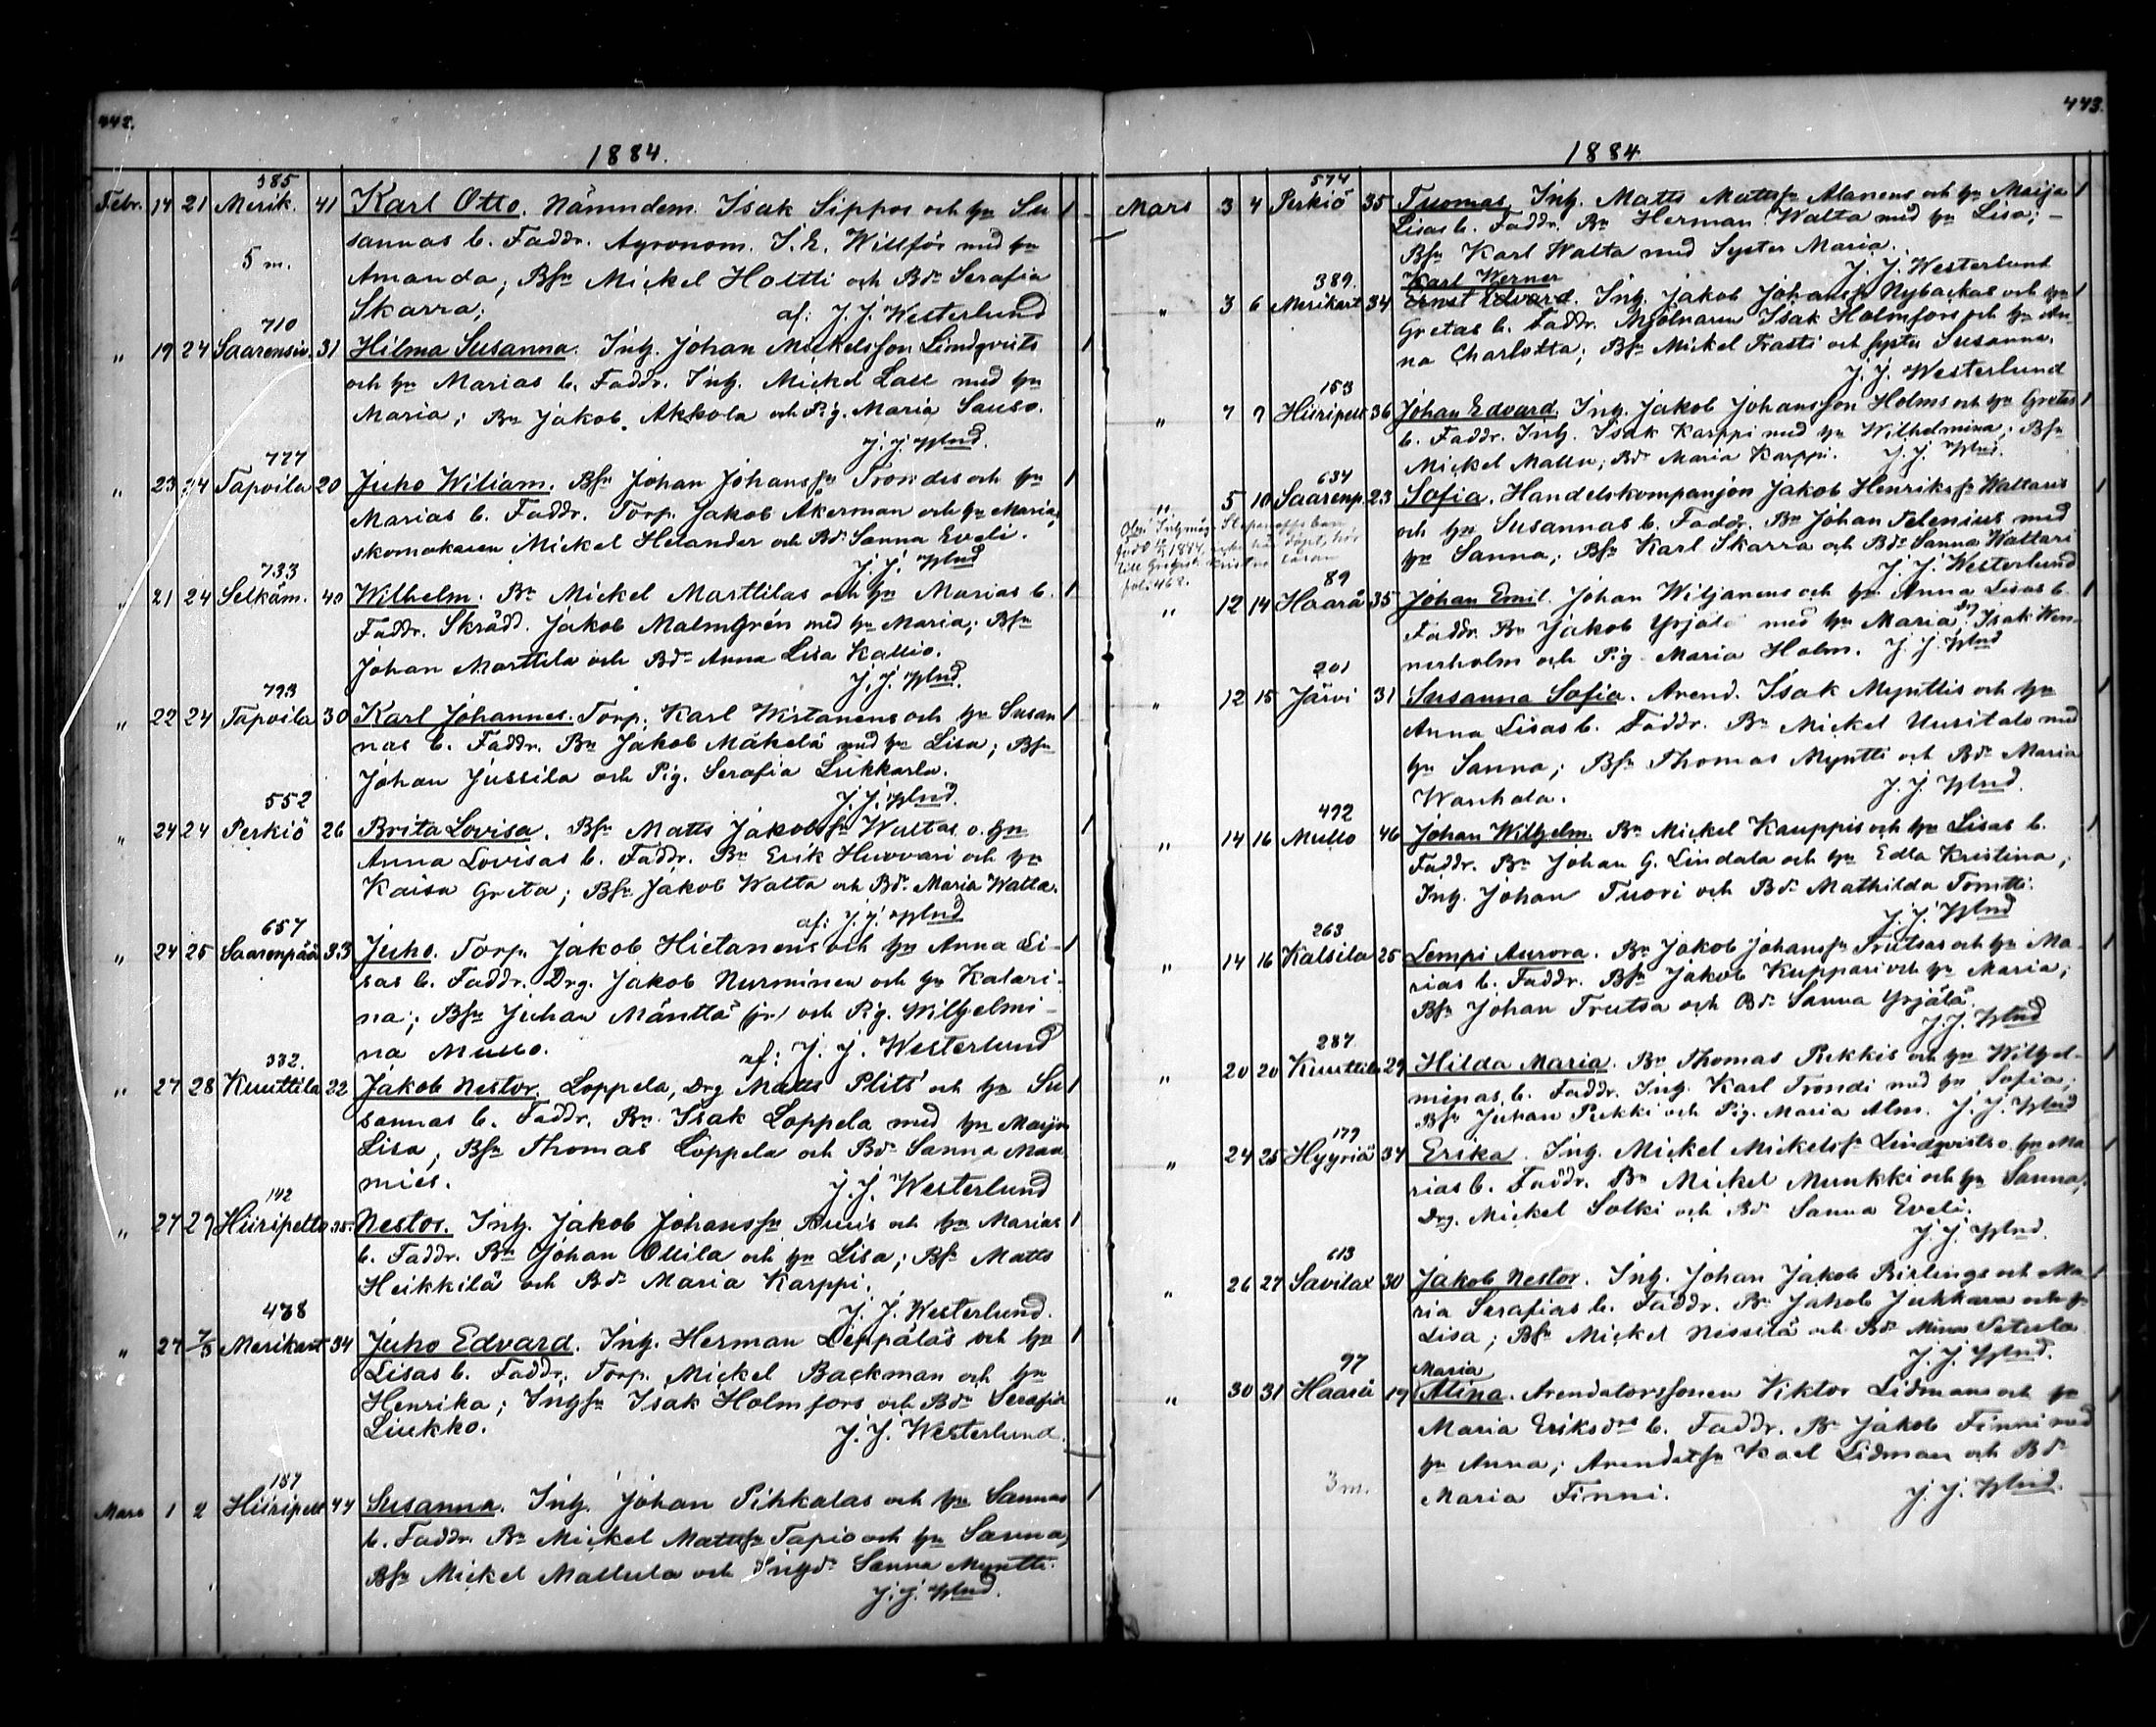 442.
1884.
385
Febr. 14 21 Merik. 41 Karl Otto. Nämndem. Isak Sippos och hu Su
sannas b. Faddr. Agronom. I. E. Willför med hu
5 m.
Amanda, Bsn Mickel Holtti och Bdr Serafia
Skarra; af: J. J. Westerlund
710
" 19 24 Saarensiv. 31 Hilma Susanna. Inh. Johan Mickelsson Lindqvists
och hu Marias b. Faddr. Inh. Mickel Lall med hu
Maria; Bn Jakob Akkola och Pig. Maria Sauso.
J. J. Wlnd.
777
" 23 24 Tapoila 20 Juho Wiliam. Bsn Johan Johanssn Trondis och hu
Marias b. Faddr. Torp. Jakob Åkerman och hu Maria,
skomakaren Mickel Helander och Bdr Sanna Eveli.
J. J. Wlnd
733
" 21 24 Selkäm. 40 Wilhelm. Bn Mickel Marttilas och hu Marias b.
Faddr. Skrädd. Jakob Malmgrén med hu Maria; Bsn
Johan Marttila och Bdr Anna Lisa Kallio.
J. J. Wlnd.
793
" 22 24 Tapoila 30 Karl Johannes. Torp. Karl Wirtanens och hu Susan
nas b. Faddr. Bn Jakob Mäkelä med hu Lisa; Bsn
Johan Jussila och Pig. Serafia Liukkarla.
J. J. Wlnd.
552
" 24 24 Perkiö 26 Brita Lovisa. Bsn Matts Jakobssn Waltas o. hu
Anna Lovisas b. Faddr. Bn Erik Huovari och hu
Kaisa Greta; Bsn Jakob Walta och Bdr Maria Walta.
af: J. J. Wlnd
657
" 24 25 Saarenpää 33 Juho. Torp. Jakob Hietanens och hu Anna Li-
sas b. Faddr. Drg. Jakob Nurminen och hu Katari-
na; Bsn Juhan Mänttä (jr) och Pig. Wilhelmi-
na Mullo. af: J. J. Westerlund
332.
" 27 28 Kuuttila 22 Jakob Nestor. Loppela, Drg Matts Plits' och hu Su
sannas b. Faddr. Bn Isak Loppela med hu Maija
Lisa; Bsn Thomas Loppela och Bdr Sanna Maa
mies. J. J. Westerlund
142
" 27 29 Hiiripelto 35 Nestor. Inh. Jakob Johanssn Ruus och hu Marias
b. Faddr. Bn Johan Ollila och hu Lisa; Bsn Matts
Heikkilä och Bdr Maria Karppi.
J. J. Westerlund.
438
" 27 2/3 Merikart 34 Juho Edvard. Inh. Herman Leppäläs och hu
Lisas b. Faddr. Torp. Mickel Backman och hu
Henrika; Inhsn Isak Holmfors och Bdr Serafia
Liukko. J. J. Westerlund.
157
Mars 1 2 Hiiripelt 44 Susanna. Inh. Johan Pihkalas och hu Sannas
b. Faddr. Bn Mickel Mattssn Tapio och hu Sanna,
Bsn Mickel Mallula och Inhdr Sanna Myntti.
J. J. Wlnd.
443.
1884
574
Mars 3 4 Perkiö 35 Tuomas. Inh. Matts Mattssn Alanens och hu Maija
Lisas b. Faddr. Bn Herman Walta med hu Lisa; -
Bsn Karl Walta med Syster Maria.
J. J. Westerlund
389. Karl Werner
" 3 6 Merikart 34 Ernst Edvard. Inh. Jakob Johanssn Nybackas och hu
Gretas b. Faddr. Mjölnaren Isak Holmfors och hu An-
na Charlotta; Bsn Mickel Trasti och Syster Susanna.
J. J. Westerlund
153
" 7 7 Hiiripelt 36 Johan Edvard. Inh. Jakob Johansson Holms och hu Gretas
b. Faddr. Inh. Isak Karppi med hu Wilhelmina; Bsn
Mickel Mallu; Bdr Maria Karppi. J. J. Wlnd.
634
" 5 10 Saarenp. 23 Sofia. Handelskompanjon Jakob Henrikssn Wattaris
och hu Susannas b. Faddr. Bn Johan Selenius med
hu Sanna; Bsn Karl Skarra och Bdr Sanna Wattari
J. J. Westerlund
Olga Stepanoffs barn
född 1884 döpt, hör
till Grekisk kristna läran
fol. 462.
89
" 12 14 Haarä 35 Johan Emil. Johan Wiljanens och hu Anna Lisas b.
Faddr. Bn Jakob Yrjälä med hu Maria; Isak Wen-
nerholm och Pig. Maria Holm. J. J. Wlnd
201
" 12 15 Järvi 31 Susanna Sofia. Arend. Isak Mynttis och hu
Anna Lisas b. Faddr. Bn Mickel Uusitalo med
hu Sanna; Bsn Thomas Myntti och Bdr Maria
Wanhala. J. J. Wlnd.
492
" 14 16 Mullo 46 Johan Wilhelm. Bn Mickel Kauppis och hu Lisas b.
Faddr. Bn Johan G. Lindala och hu Edla Kristina;
Inh. Johan Tuori och Bdr Mathilda Tomtti.
J. J. Wlnd
263
" 14 16 Kalsila 25 Lempi Aurora. Bn Jakob Johanssn Trutsas och hu Ma-
rias b. Faddr. Bsn Jakob Kuppari och hu Maria;
Bsn Johan Trutsa och Bdr Sanna Yrjälä.
J. J. Wlnd
287
" 20 20 Kuuttila 29 Hilda Maria. Bn Thomas Pukkis och hu Wilhel-
minas b. Faddr. Inh. Karl Trondi med hu Sofia;
Bsn Juhan Pukki och Pig. Maria Alm. J. J. Wlnd
179
" 24 25 Hyyriä 34 Erika. Inh. Mickel Mickelssn Lindqvists o. hu Ma
rias b. Faddr. Bn Mickel Munkki och hu Sanna;
Drg. Mickel Solki och Bdr Sanna Eveli.
J. J. Wlnd.
613
" 26 27 Savilax 30 Jakob Nestor. Inh. Johan Jakob Birlings och Ma
ria Serafias b. Faddr. Bn Jakob Jukkara och hu
Lisa; Bsn Mickel Nissilä och Bdr Mina Peterla
J. J. Wlnd.
97 Maria
" 30 31 Haarä 19 Alina. Arendatorssonen Viktor Lidmans och hu
Maria Eriksdrs b. Faddr. Bn Jakob Finni med
hu Anna; Arendatsn Karl Lidman och Bdr
3 m. Maria Finni. J. J. Wlnd.